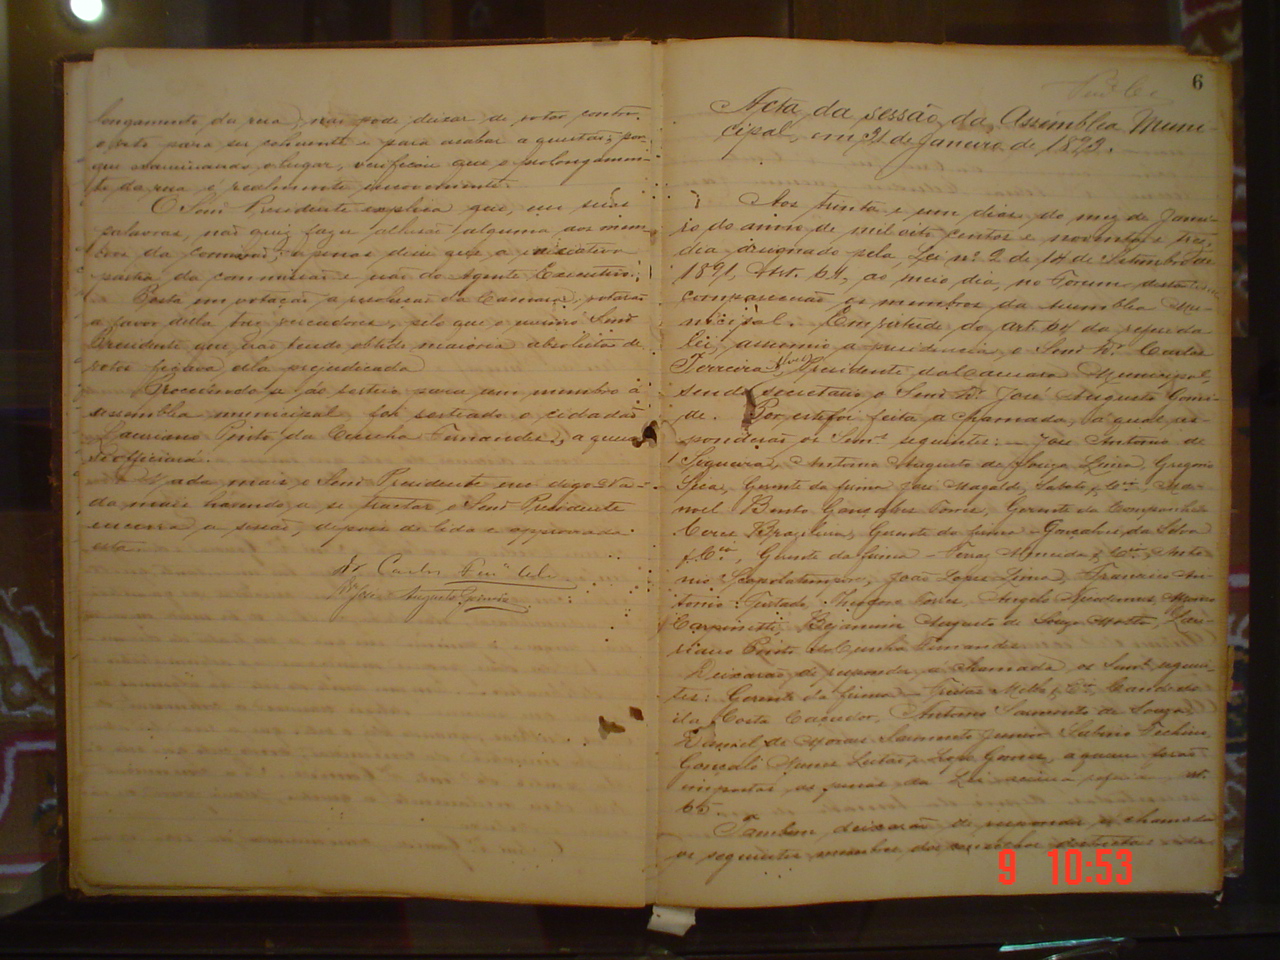 longamento da rua, não pode deixar de votar contra
o veto para ser coherente e para acabar a questão; por-
que examinando o lugar, verificou que o prolongamen-
to da rua é realmente inconveniente.
O Senr. Presidente explica que, em suas
palavras, não quiz fazer allusão alguma aos mem-
bros da comissão, apenas disse que a iniciativa
partio da commissão e não do Agente Executivo.
Posta em votação a resolução da Camara, votarão
a favor della tres vereadores, pelo que o mesmo Senr.
Presidente que, não tendo obtido maioria absoluta de
votos ficava ella prejudicada
Procedendo-se ao sorteio para um membro á
assembléa municipal foi sorteado o cidadão
Lauriano Pinto da Cunha Fernandes, a quem
se officiará.
Nada mais, o Senr. Presidente
da mais havendo a se tractar o Senr. Presidente
encerra a sessão, depois de lida e approvada
esta.
Dr. Carlos
José Augusto
6
Acta da sessão da Assembléa Muni-
cipal, em 31 de Janeiro de 1893.
Aos trinta e um dias do mez de Janei-
ro do anno de mil oito centos e noventa e tres,
dia designado pela Lei nº 2 de 14 de Setembro de
1891, Art. 64, ao meio dia, no Forum desta
comparecerão os membros da assembléa Mu-
nicipal. Em virtude do art 64 da referida
lei, assumio a presidencia, o Senr. Dr. Carlos
Ferreira Presidente da Camara Municipal,
sendo secretario o Senr. Dr. José Augusto
de. Por este foi feita a chamada, á qual res-
ponderão os Senrs. seguintes: — José Antonio de
Siqueira, Antonio Augusto de Souza Lima, Gregorio
Gerente da firma José Magaldi, Sabato & Cia, Ma-
noel Bento Gonçalves Torres, Gerente da Companhia
Brazileira, Gerente da firma Gonçalves da Silva
& Cia, Gerente da firma — Ferraz Almeida & Cia, Anto-
nio João Lopes Lima, Francisco An-
tonio Furtado, Theodoro Torres, Angelo
Benjamin Augusto de Souza Motta, Lau-
riano Pinto da Cunha Fernandes.
Deixarão de responder á chamada os Senrs. seguin-
tes: Gerente da firma — Freitas Mello & Cia, Candido
da Costa Antonio Sarmento de Souza,
Daniel de Moraes Sarmento Junior, Sabino
Gonçalo Nunes Lopes Gomes, a quem forão
impostas as penas da Lei acima referida, art.
65.
Tambem deixarão de responder á chamada
os seguintes membros dos conselhos districtaes
9 10:53